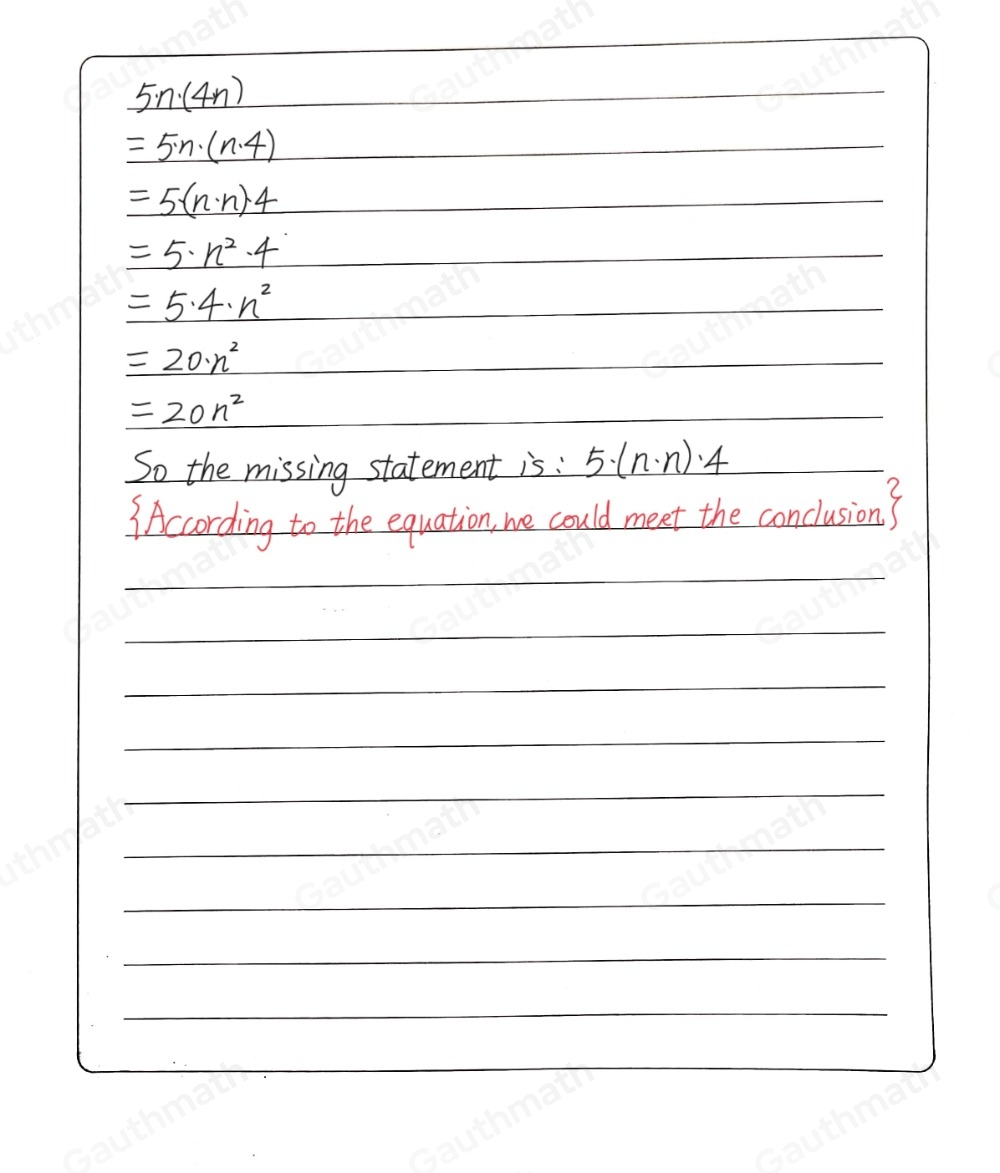 5·n·(4n)
= 5·n·(n·4)
= 5·(n·n)·4
= 5·n²·4
= 5·4·n²
= 20·n²
= 20n²
So the missing statement is: 5·(n·n)·4
{According to the equation, we could meet the conclusion.}